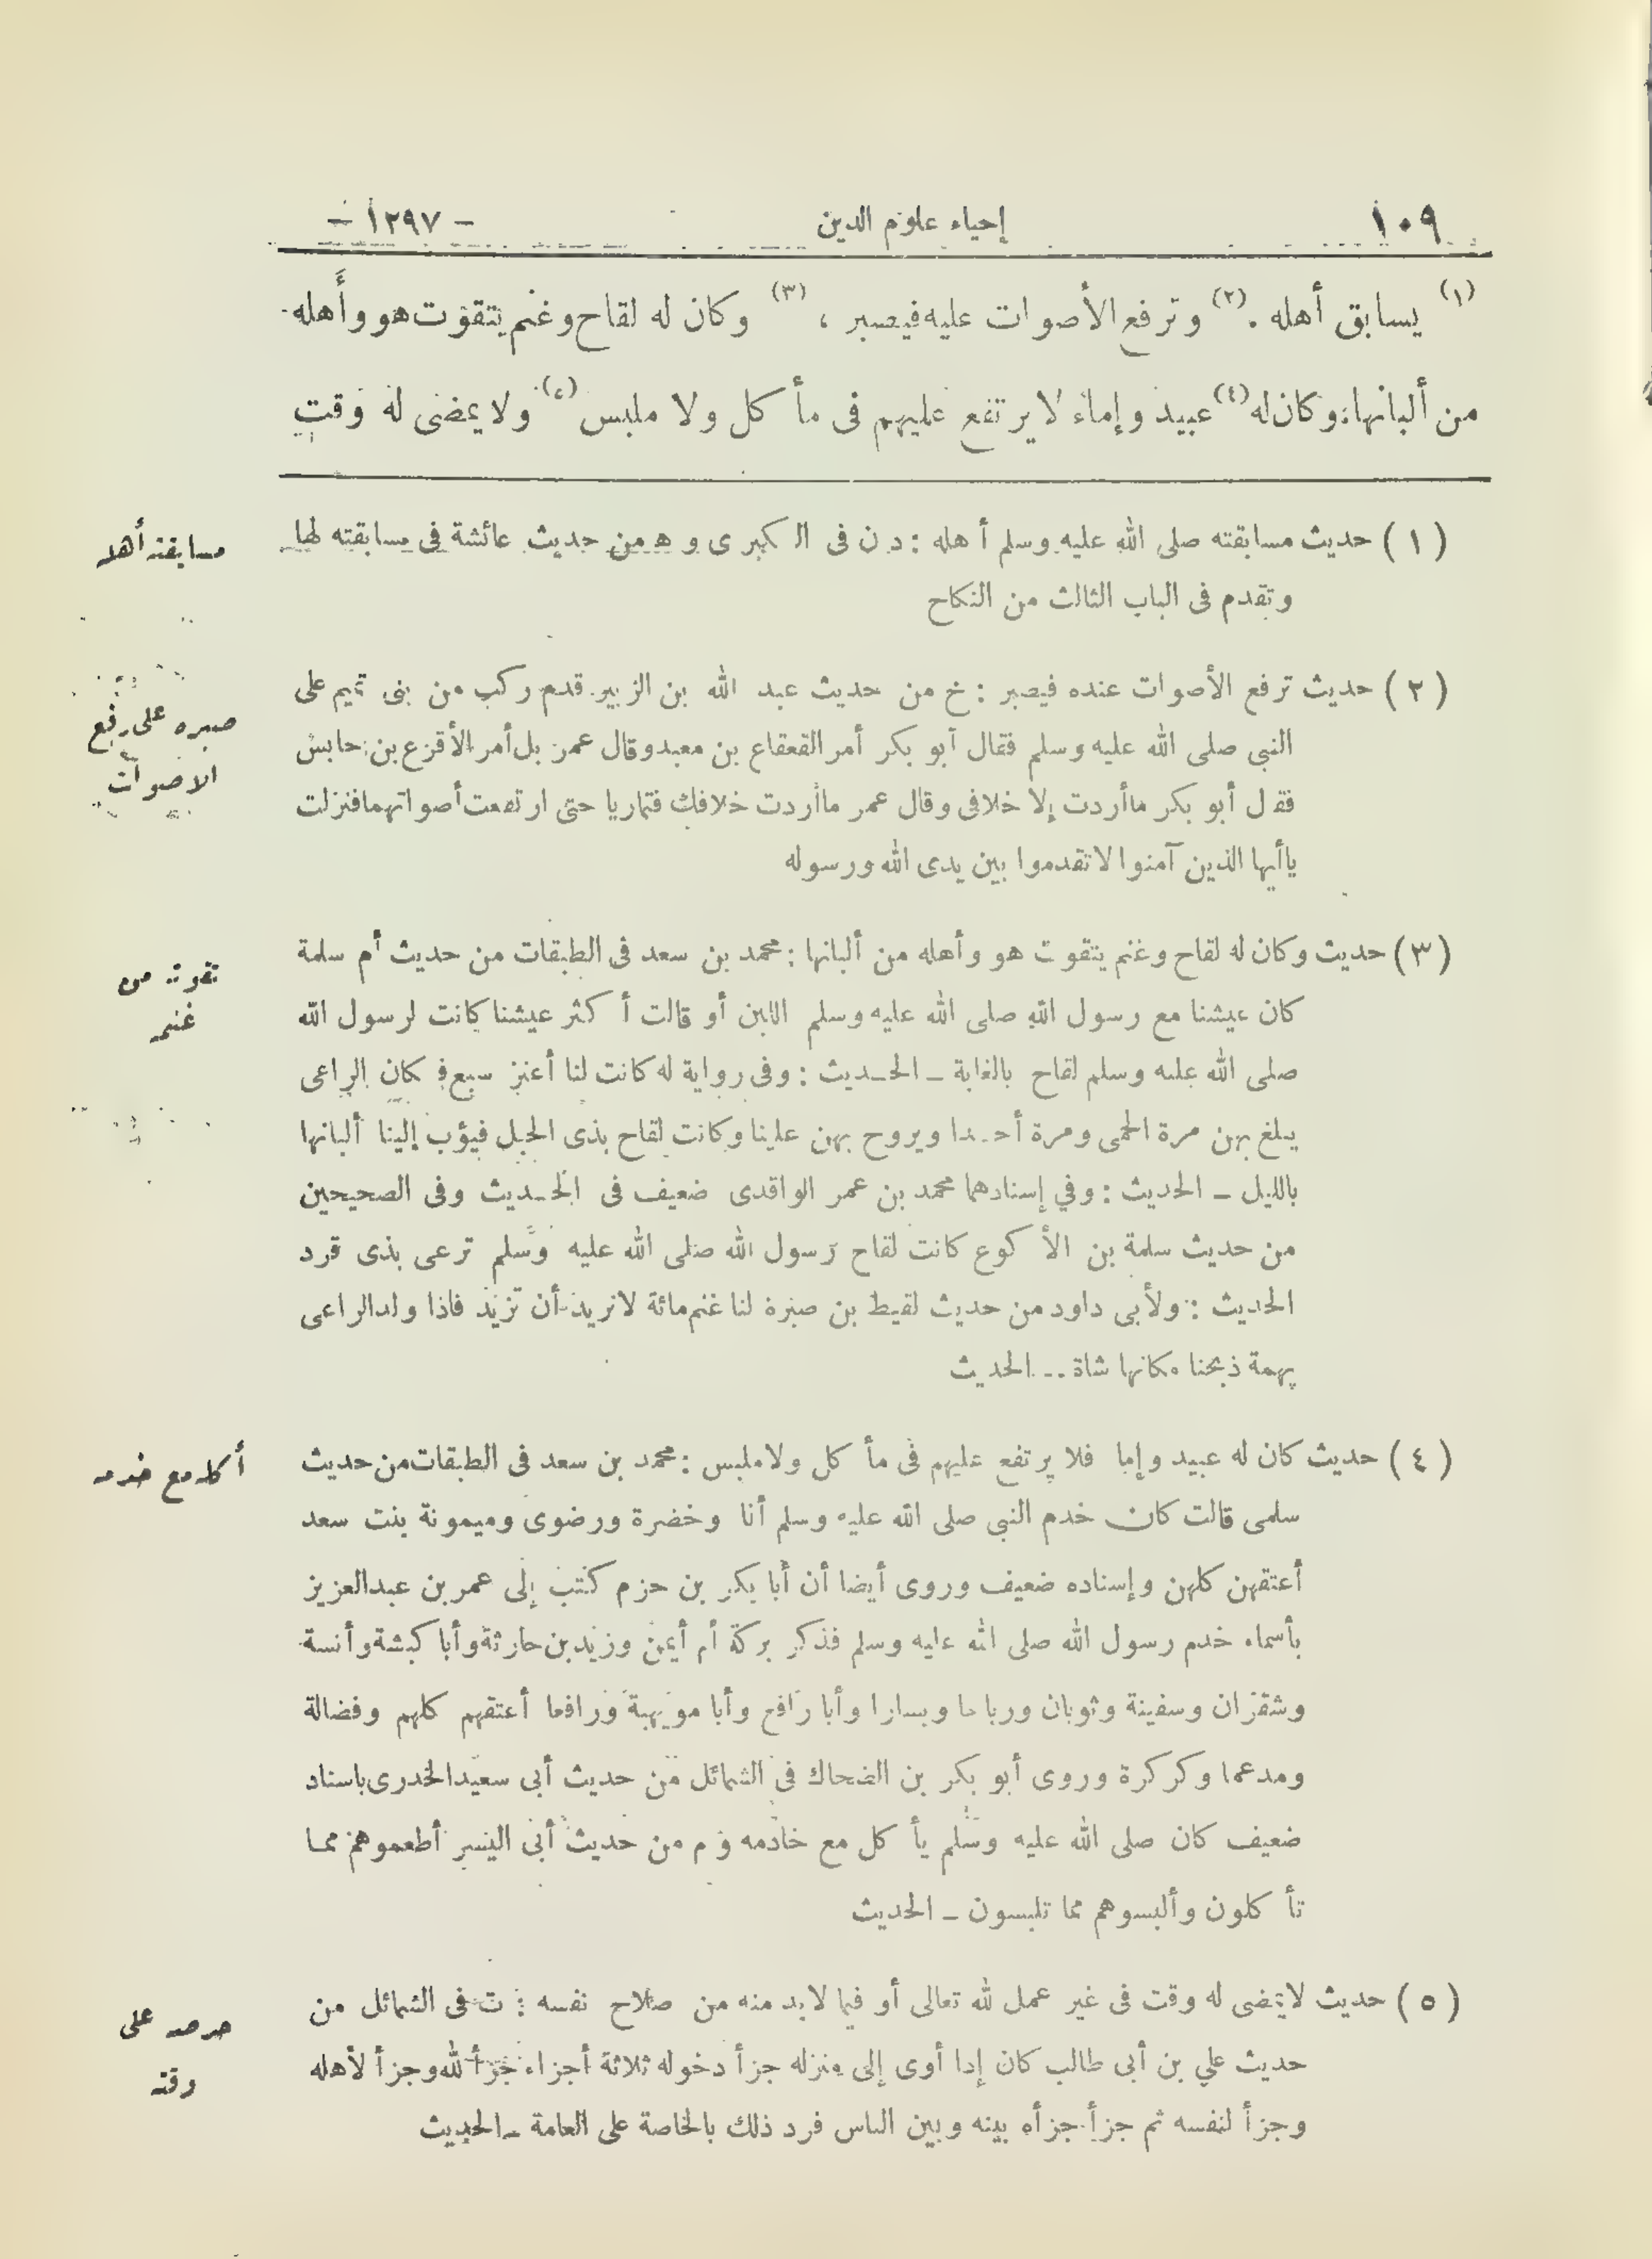 ١٠٩ إحياء علوم الدين – ١٢٩٧ –
(١) يسابق أهله . (٢) وترفع الأصوات عليه فيصبر ، (٣) وكان له لقاح وغنم يتقوت هو وأهله
من ألبانها . وكان له (٤) عبيد وإماء لا يرتفع عليهم فى مأكل ولا ملبس (٥) ولا يمضى له وقت
(١) حديث مسابقته صلى الله عليه وسلم أهله : د ن فى الكبرى و ه من حديث عائشة فى مسابقته لها
وتقدم فى الباب الثالث من النكاح
مسابقته أهله
(٢) حديث ترفع الأصوات عنده فيصبر : خ من حديث عبد الله بن الزبير قدم ركب من بنى تميم على
النبي صلى الله عليه وسلم فقال أبو بكر أمر القعقاع بن معبد وقال عمر بل أمر الأقرع بن حابس
فقال أبو بكر ماأردت إلا خلافى وقال عمر ماأردت خلافك فتماريا حتى ارتفعت أصواتهما فنزلت
ياأيها الذين آمنوا لا تقدموا بين يدى الله ورسوله
صبره على رفع
الأصوات
(٣) حديث وكان له لقاح وغنم يتقوت هو وأهله من ألبانها : محمد بن سعد فى الطبقات من حديث أم سلمة
كان عيشنا مع رسول الله صلى الله عليه وسلم اللبن أو قالت أكثر عيشنا كانت لرسول الله
صلى الله عليه وسلم لقاح بالغابة – الحديث : وفى رواية له كانت لنا أعنز سبع فكان الراعى
يبلغ بهن مرة الحمى ومرة أحدا ويروح بهن علينا وكانت لقاح بذى الجبل فيؤب إلينا ألبانها
بالليل – الحديث : وفي إسنادهما محمد بن عمر الواقدى ضعيف فى الحديث وفى الصحيحين
من حديث سلمة بن الأكوع كانت لقاح رسول الله صلى الله عليه وسلم ترعى بذى قرد
الحديث : ولأبى داود من حديث لقيط بن صبرة لنا غنم مائة لانريد أن تزيد فاذا ولد الراعى
بهمة ذبحنا مكانها شاة – الحديث
تقوته من
غنمه
(٤) حديث كان له عبيد وإما فلا يرتفع عليهم فى مأكل ولا ملبس : محمد بن سعد فى الطبقات من حديث
سلمى قالت كان خدم النبى صلى الله عليه وسلم أنا وخضرة ورضوى وميمونة بنت سعد
أعتقهن كلهن وإسناده ضعيف وروى أيضا أن أبا بكر بن حزم كتب إلى عمر بن عبدالعزيز
بأسماء خدم رسول الله صلى الله عليه وسلم فذكر بركة أم أيمن وزيد بن حارثة وأبا كبشة وأنسة
وشقران وسفينة وثوبان ورباحا ويسارا وأبا رافع وأبا مويهبة ورافعا أعتقهم كلهم وفضالة
ومدعما وكركرة وروى أبو بكر بن الضحاك فى الشمائل من حديث أبى سعيد الخدرى باسناد
ضعيف كان صلى الله عليه وسلم يأكل مع خادمه و م من حديث أبى اليسر أطعموهم مما
تأكلون وألبسوهم مما تلبسون – الحديث
أكله مع خدمه
(٥) حديث لا يمضى له وقت فى غير عمل لله تعالى أو فيما لابد منه من صلاح نفسه : ت فى الشمائل من
حديث علي بن أبى طالب كان إدا أوى إلى منزله جزأ دخوله ثلاثة أجزاء جزأ لله وجزأ لأهله
وجزأ لنفسه ثم جزأ جزأه بينه وبين الناس فرد ذلك بالخاصة على العامة – الحديث
حرصه على
وقته